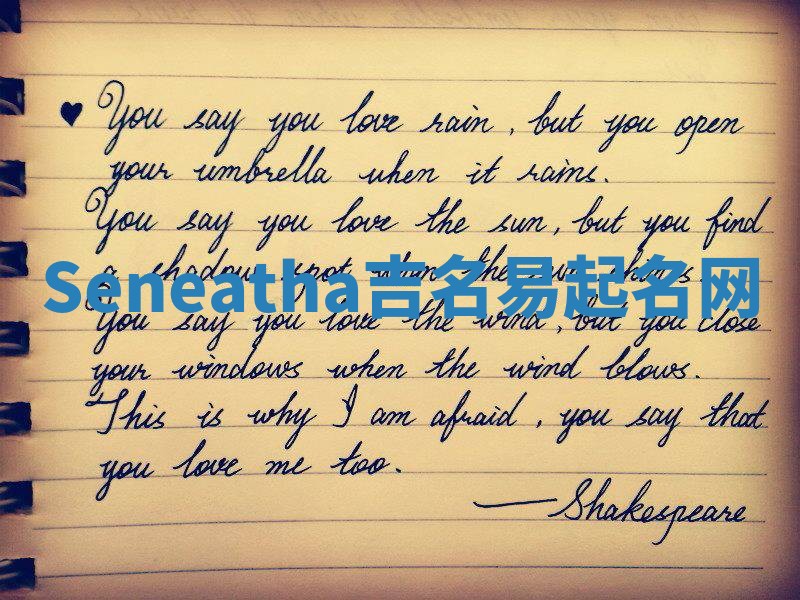 ♥ You say you love rain, but you open
your umbrella when it rains.
You say you love the sun, but you find
a shadow spot when the sun shines.
Seneatha吉名易起名网
You say you love the wind, but you close
your windows when the wind blows.
This is why I am afraid, you say that
you love me too.
—Shakespeare